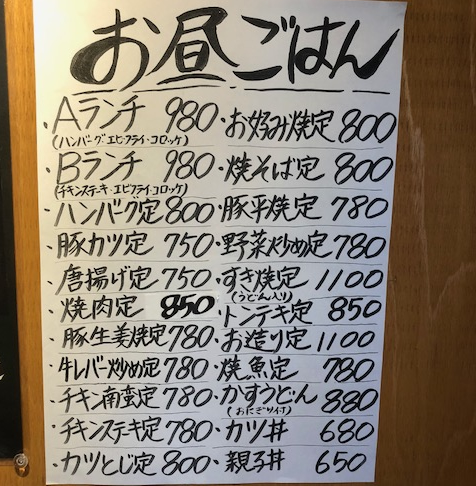 お昼ごはん
・Aランチ 980
(ハンバーグ・エビフライ・コロッケ)
・Bランチ 980
(チキンステーキ・エビフライ・コロッケ)
・ハンバーグ定 800
・豚カツ定 750
・唐揚げ定 750
・焼肉定 850
・豚生姜焼定 780
・牛レバー炒め定 780
・チキン南蛮定 780
・チキンステキ定 780
・カツとじ定 800
・お好み焼定 800
・焼そば定 800
・豚平焼定 780
・野菜炒め定 780
・すき焼定 1100
(うどん入り)
・トンテキ定 850
・お造り定 1100
・焼魚定 780
・かすうどん 880
(おにぎり付)
・カツ丼 680
・親子丼 650